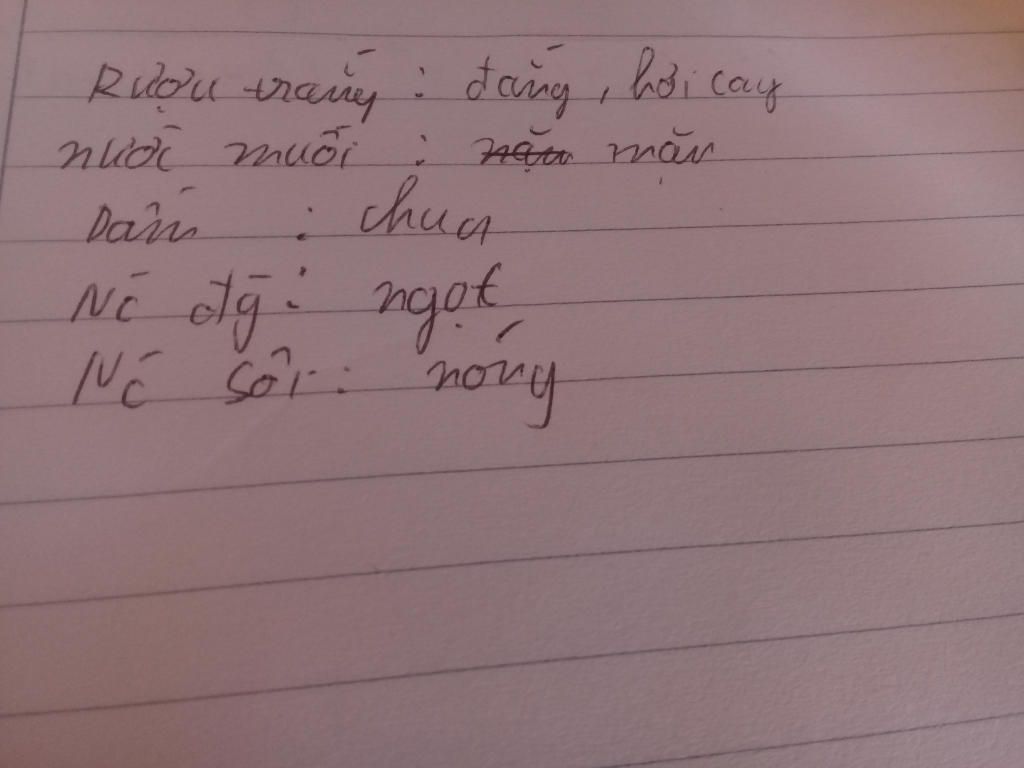 Rượu trắng : đắng, hơi cay
nước muối : mặn mặn
Dấm : chua
Nc đg : ngọt
Nc sôi : nóng